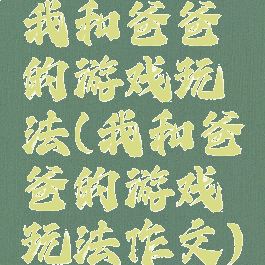 我和爸爸
的游戏玩
法(我和爸
爸的游戏
玩法作文)